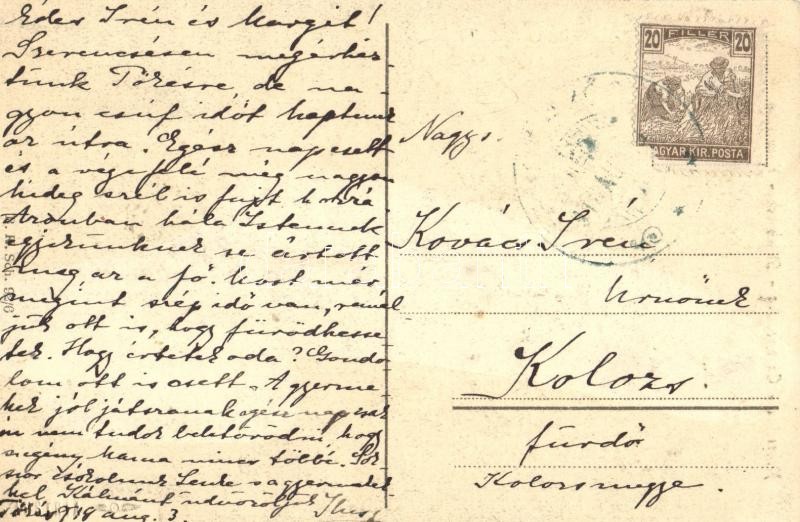 Édes Irén és Margit!
Szerencsésen megérkez-
tünk Tőkésre, de na-
gyon csúf időt kaptunk
az útra. Egész nap esett
és a vége felé még nagyon
hideg szél is fujt hozzá
Azonban hála Istennek
egyikünknek se ártott
meg az a fő. Most már
megint szép idő van, remél
jük ott is, hogy fürödhesse-
tek. Hogy értetek oda? Gondo
lom ott is esett. A gyerme-
kek jól játszanak egész nap csak
én nem tudok beletörődni, hogy
szegény Mama nincs többé. Sok-
szor csókolunk Lenke s a gyermekek
kel, Kálmánt üdvözöljük
918 aug. 3.
20 FILLÉR 20
MAGYAR KIR. POSTA
Nagys.
Kovács Irén
Urnőnek
Kolozs.
fürdő
Kolozsmegye.